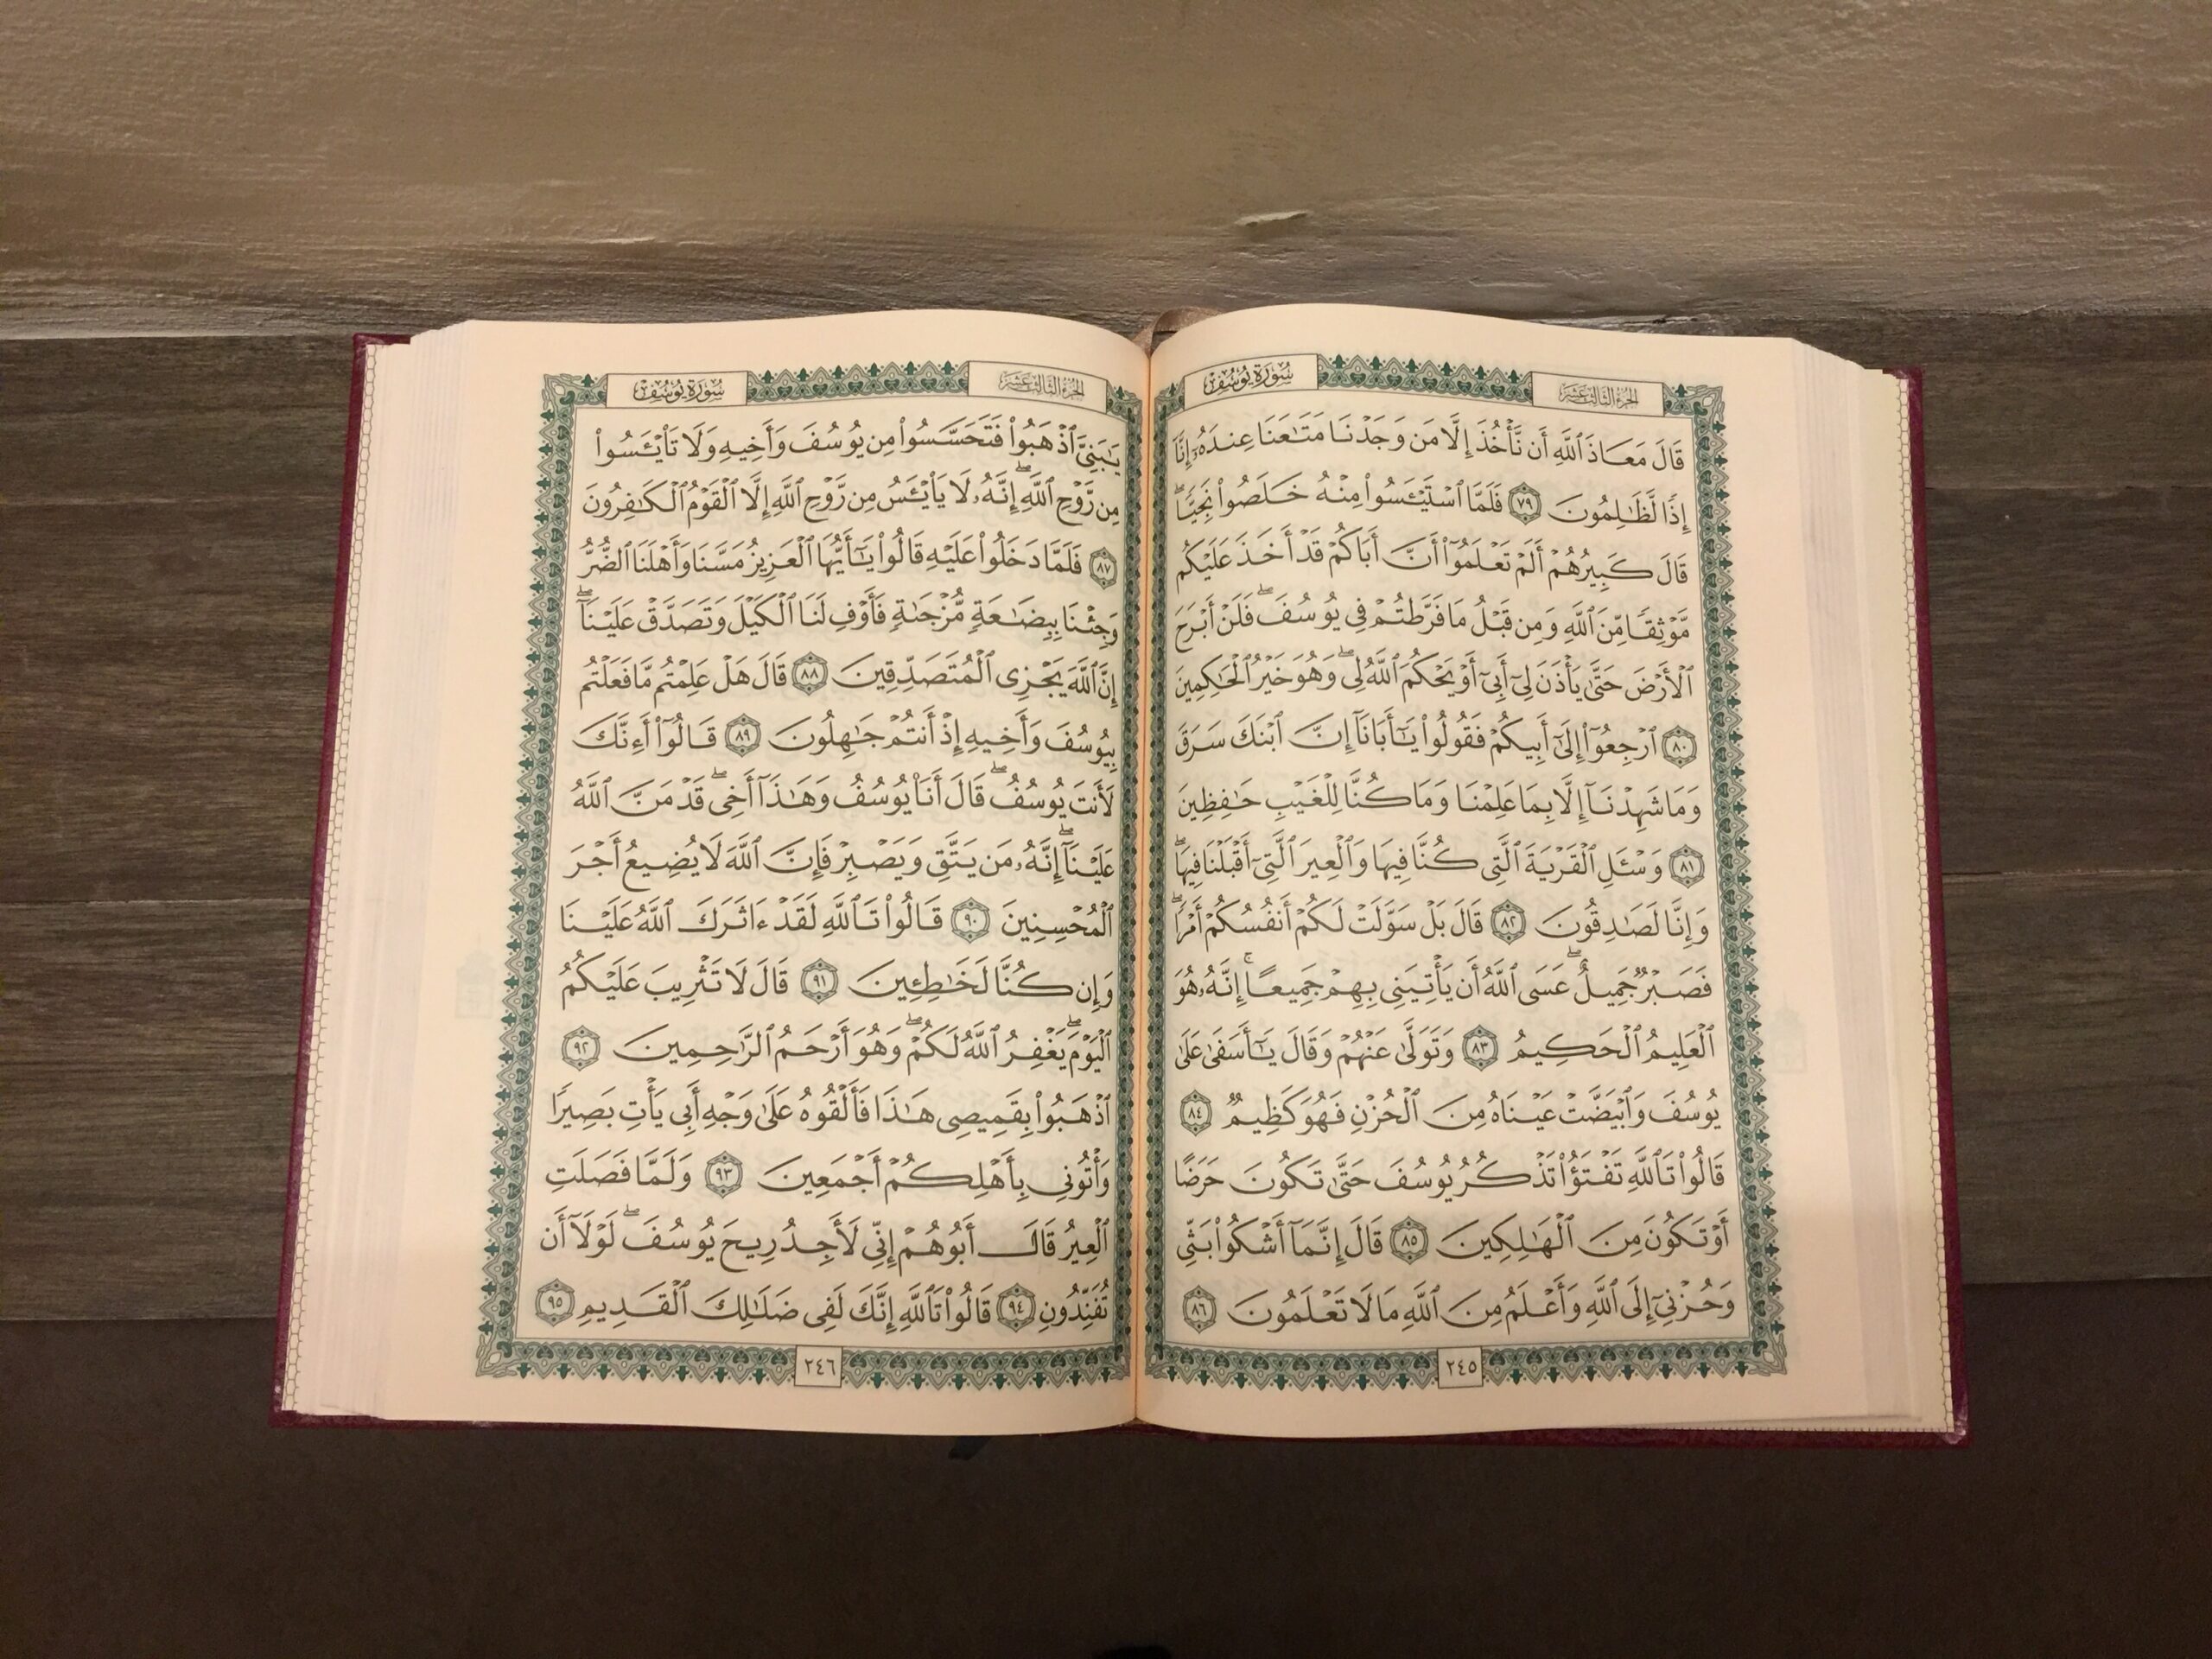 الجزء الثالث عشر
سورة يوسف
قَالَ مَعَاذَ ٱللَّهِ أَن نَّأْخُذَ إِلَّا مَن وَجَدْنَا مَتَٰعَنَا عِندَهُۥٓ إِنَّآ
إِذًا لَّظَٰلِمُونَ ٧٩ فَلَمَّا ٱسْتَيْـَٔسُوا۟ مِنْهُ خَلَصُوا۟ نَجِيًّا ۖ
قَالَ كَبِيرُهُمْ أَلَمْ تَعْلَمُوٓا۟ أَنَّ أَبَاكُمْ قَدْ أَخَذَ عَلَيْكُم
مَّوْثِقًا مِّنَ ٱللَّهِ وَمِن قَبْلُ مَا فَرَّطتُمْ فِى يُوسُفَ ۖ فَلَنْ أَبْرَحَ
ٱلْأَرْضَ حَتَّىٰ يَأْذَنَ لِىٓ أَبِىٓ أَوْ يَحْكُمَ ٱللَّهُ لِى ۖ وَهُوَ خَيْرُ ٱلْحَٰكِمِينَ
٨٠ ٱرْجِعُوٓا۟ إِلَىٰٓ أَبِيكُمْ فَقُولُوا۟ يَٰٓأَبَانَآ إِنَّ ٱبْنَكَ سَرَقَ
وَمَا شَهِدْنَآ إِلَّا بِمَا عَلِمْنَا وَمَا كُنَّا لِلْغَيْبِ حَٰفِظِينَ
٨١ وَسْـَٔلِ ٱلْقَرْيَةَ ٱلَّتِى كُنَّا فِيهَا وَٱلْعِيرَ ٱلَّتِىٓ أَقْبَلْنَا فِيهَا ۖ
وَإِنَّا لَصَٰدِقُونَ ٨٢ قَالَ بَلْ سَوَّلَتْ لَكُمْ أَنفُسُكُمْ أَمْرًا ۖ
فَصَبْرٌ جَمِيلٌ ۖ عَسَى ٱللَّهُ أَن يَأْتِيَنِى بِهِمْ جَمِيعًا ۚ إِنَّهُۥ هُوَ
ٱلْعَلِيمُ ٱلْحَكِيمُ ٨٣ وَتَوَلَّىٰ عَنْهُمْ وَقَالَ يَٰٓأَسَفَىٰ عَلَىٰ
يُوسُفَ وَٱبْيَضَّتْ عَيْنَاهُ مِنَ ٱلْحُزْنِ فَهُوَ كَظِيمٌ ٨٤
قَالُوا۟ تَٱللَّهِ تَفْتَؤُا۟ تَذْكُرُ يُوسُفَ حَتَّىٰ تَكُونَ حَرَضًا
أَوْ تَكُونَ مِنَ ٱلْهَٰلِكِينَ ٨٥ قَالَ إِنَّمَآ أَشْكُوا۟ بَثِّى
وَحُزْنِىٓ إِلَى ٱللَّهِ وَأَعْلَمُ مِنَ ٱللَّهِ مَا لَا تَعْلَمُونَ ٨٦
٢٤٥
الجزء الثالث عشر
سورة يوسف
يَٰبَنِىَّ ٱذْهَبُوا۟ فَتَحَسَّسُوا۟ مِن يُوسُفَ وَأَخِيهِ وَلَا تَا۟يْـَٔسُوا۟
مِن رَّوْحِ ٱللَّهِ ۖ إِنَّهُۥ لَا يَا۟يْـَٔسُ مِن رَّوْحِ ٱللَّهِ إِلَّا ٱلْقَوْمُ ٱلْكَٰفِرُونَ
٨٧ فَلَمَّا دَخَلُوا۟ عَلَيْهِ قَالُوا۟ يَٰٓأَيُّهَا ٱلْعَزِيزُ مَسَّنَا وَأَهْلَنَا ٱلضُّرُّ
وَجِئْنَا بِبِضَٰعَةٍ مُّزْجَىٰةٍ فَأَوْفِ لَنَا ٱلْكَيْلَ وَتَصَدَّقْ عَلَيْنَآ ۖ
إِنَّ ٱللَّهَ يَجْزِى ٱلْمُتَصَدِّقِينَ ٨٨ قَالَ هَلْ عَلِمْتُم مَّا فَعَلْتُم
بِيُوسُفَ وَأَخِيهِ إِذْ أَنتُمْ جَٰهِلُونَ ٨٩ قَالُوٓا۟ أَءِنَّكَ
لَأَنتَ يُوسُفُ ۖ قَالَ أَنَا۠ يُوسُفُ وَهَٰذَآ أَخِى ۖ قَدْ مَنَّ ٱللَّهُ
عَلَيْنَآ ۖ إِنَّهُۥ مَن يَتَّقِ وَيَصْبِرْ فَإِنَّ ٱللَّهَ لَا يُضِيعُ أَجْرَ
ٱلْمُحْسِنِينَ ٩٠ قَالُوا۟ تَٱللَّهِ لَقَدْ ءَاثَرَكَ ٱللَّهُ عَلَيْنَا
وَإِن كُنَّا لَخَٰطِـِٔينَ ٩١ قَالَ لَا تَثْرِيبَ عَلَيْكُمُ
ٱلْيَوْمَ ۖ يَغْفِرُ ٱللَّهُ لَكُمْ ۖ وَهُوَ أَرْحَمُ ٱلرَّٰحِمِينَ ٩٢
ٱذْهَبُوا۟ بِقَمِيصِى هَٰذَا فَأَلْقُوهُ عَلَىٰ وَجْهِ أَبِى يَأْتِ بَصِيرًا
وَأْتُونِى بِأَهْلِكُمْ أَجْمَعِينَ ٩٣ وَلَمَّا فَصَلَتِ
ٱلْعِيرُ قَالَ أَبُوهُمْ إِنِّى لَأَجِدُ رِيحَ يُوسُفَ ۖ لَوْلَآ أَن
تُفَنِّدُونِ ٩٤ قَالُوا۟ تَٱللَّهِ إِنَّكَ لَفِى ضَلَٰلِكَ ٱلْقَدِيمِ ٩٥
٢٤٦